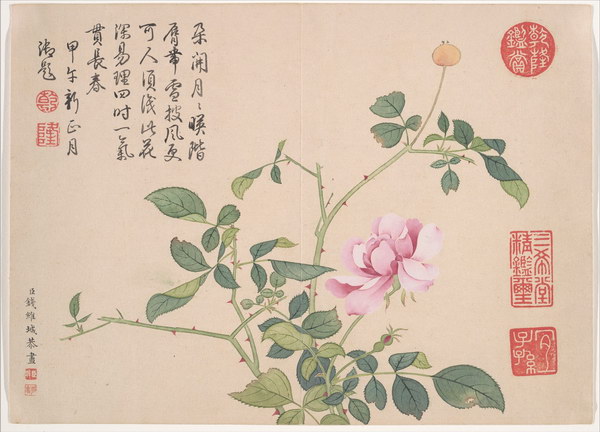 乾隆鑑賞
三希堂精鑑璽
宜子孫
朶開月〻暎階
脣帶雪披風更
可人須識此花
深易理四时一氣
貫長春
甲午新正月
御題
乾
隆
臣錢維城恭畫